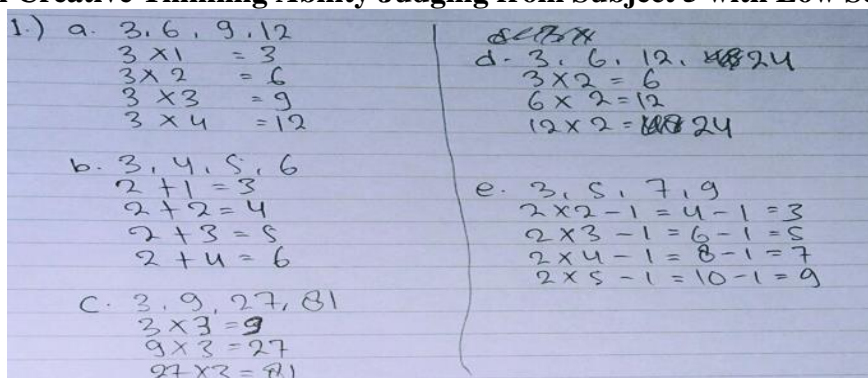 Creative Thinking Ability Judging from Subject 3 with Low Se
1.) a. 3, 6, 9, 12
3 × 1 = 3
3 × 2 = 6
3 × 3 = 9
3 × 4 = 12
b. 3, 4, 5, 6
2 + 1 = 3
2 + 2 = 4
2 + 3 = 5
2 + 4 = 6
c. 3, 9, 27, 81
3 × 3 = 9
9 × 3 = 27
27 × 3 = 81
d. 3, 6, 12, 24
3 × 2 = 6
6 × 2 = 12
12 × 2 = 24
e. 3, 5, 7, 9
2 × 2 - 1 = 4 - 1 = 3
2 × 3 - 1 = 6 - 1 = 5
2 × 4 - 1 = 8 - 1 = 7
2 × 5 - 1 = 10 - 1 = 9